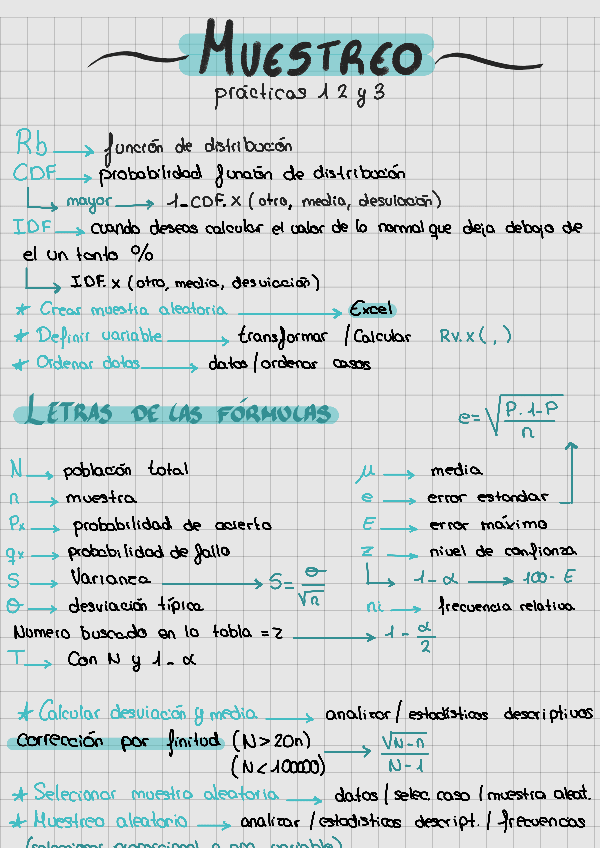 MUESTREO
prácticas 1 2 y 3
Rb → función de distribución
CDF → probabilidad función de distribución
mayor → 1_CDF. X (otro, media, desviación)
IDF → cuando deseas calcular el valor de la normal que deja debajo de
el un tanto %
IDF. x (otro, media, desviación)
* Crear muestra aleatoria → Excel
* Definir variable → transformar / Calcular Rv. x ( , )
* Ordenar datos → datos / ordenar casos
LETRAS DE LAS FÓRMULAS
e = √(P. 1-P / n)
N → población total
μ → media
n → muestra
e → error estandar
Px → probabilidad de acierto
E → error máximo
qx → probabilidad de fallo
z → nivel de confianza
S → Varianza → S = Θ / √n
1 - α → 100 - E
Θ → desviación típica
ni → frecuencia relativa
Numero buscado en la tabla = z → 1 - α/2
T → Con N y 1 - α
* Calcular desviación y media → analizar / estadísticos descriptivos
corrección por finitud (N > 20n) → √N-n / N-1
(N < 100000)
* Selecionar muestra aleatoria → datos / selec. caso / muestra aleat.
* Muestreo aleatorio → analizar / estadisticos descript. / frecuencias